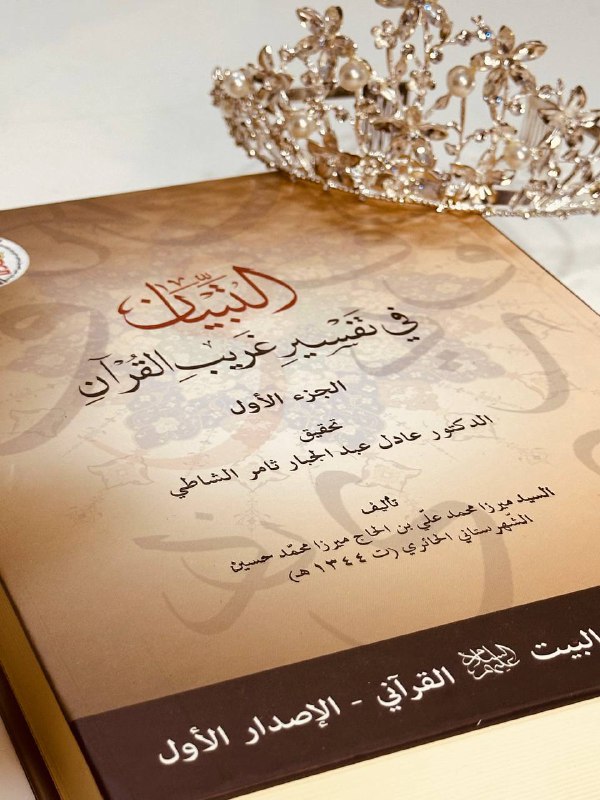 التِّبْيَان
في تَفْسِيرِ غَرِيبِ القُرْآنِ
الجزء الأول
تحقيق
الدكتور عادل عبد الجبار ثامر الشاطي
تأليف
السيد ميرزا محمد علّي بن الحاج ميرزا محمّد حسين
الشّهرستاني الحائري (ت ١٣٤٤ هـ)
البيت عليهم السلام القرآني - الإصدار الأول